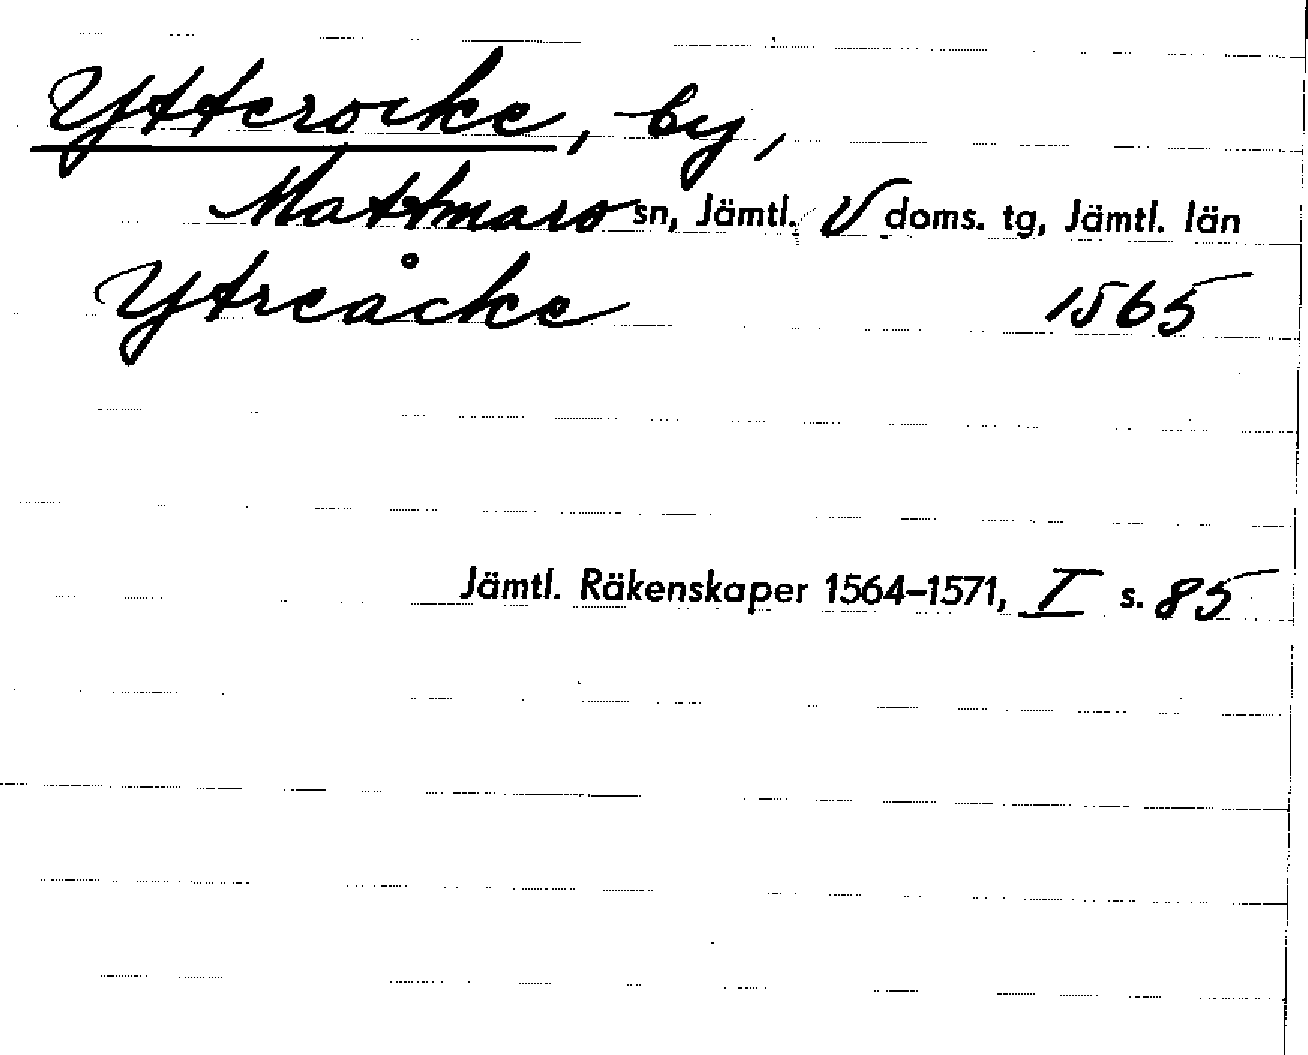 Ytterocke, by,
Mattmars sn, Jämtl. V doms. tg, Jämtl. län
Ytreåcke 1565
Jämtl. Räkenskaper 1564–1571, I s. 85